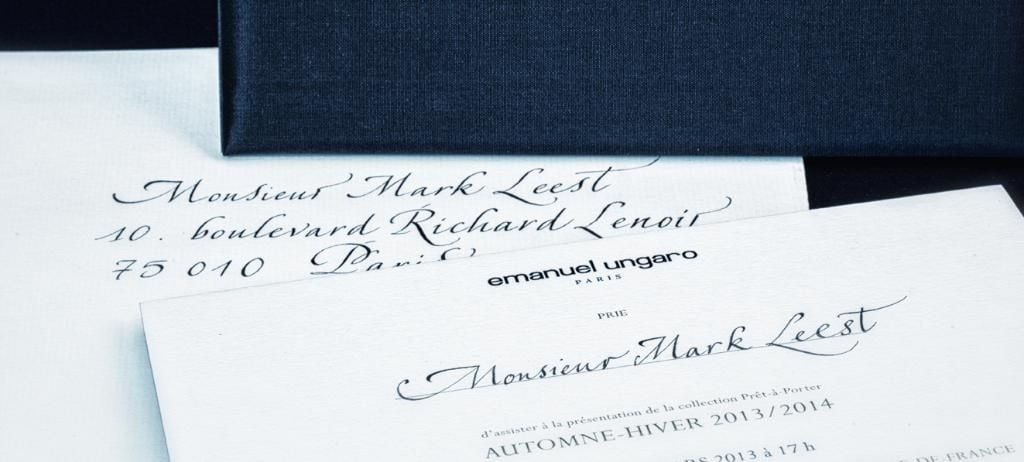 Monsieur Mark Leest
10. boulevard Richard Lenoir
75 010 Paris
emanuel ungaro
PARIS
PRIE
Monsieur Mark Leest
d'assister à la présentation de la collection Prêt-à-Porter
AUTOMNE-HIVER 2013/2014
2013 à 17 h
DE-FRANCE